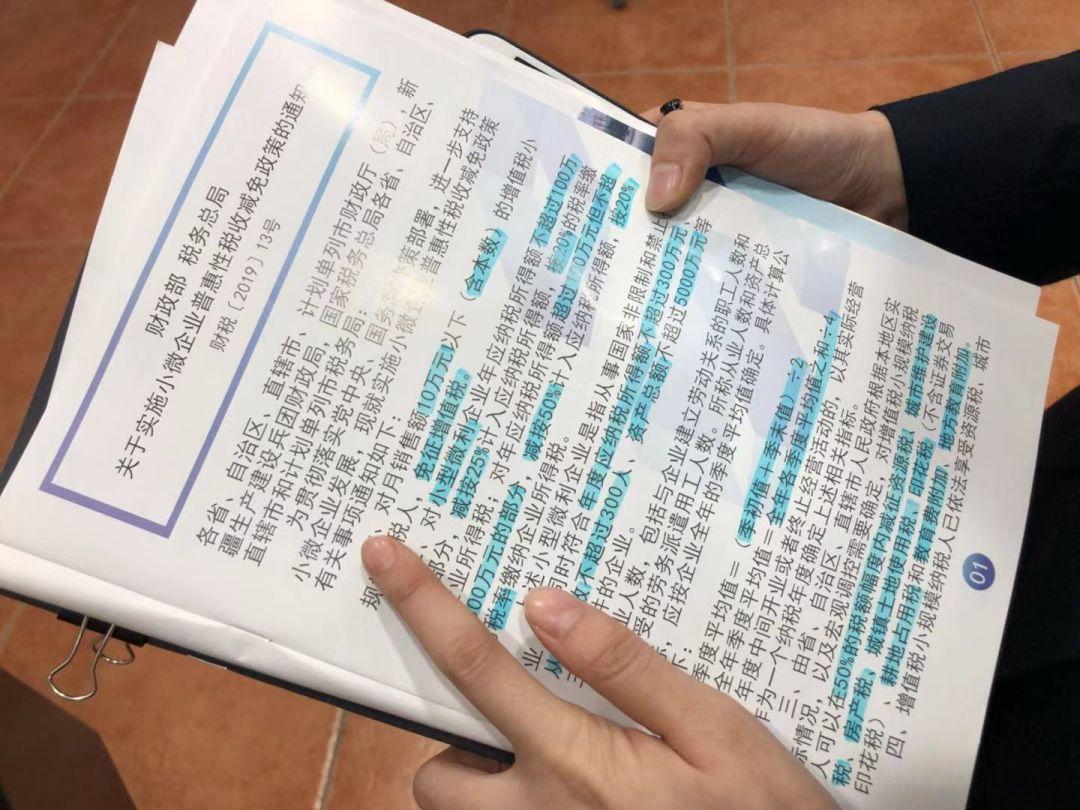 财政部 税务总局
关于实施小微企业普惠性税收减免政策的通知
财税〔2019〕13号
各省、自治区、直辖市、计划单列市财政厅（局），新
疆生产建设兵团财政局，国家税务总局各省、自治区、
直辖市和计划单列市税务局：
为贯彻落实党中央、国务院决策部署，进一步支持
小微企业发展，现就实施小微企业普惠性税收减免政策
有关事项通知如下：
、对月销售额10万元以下（含本数）的增值税小
规 税人，免征增值税。
、对小型微利企业年应纳税所得额不超过100万
部分，减按25%计入应纳税所得额，按20%的税率缴
业所得税；对年应纳税所得额超过100万元但不超
00万元的部分，减按50%计入应纳税所得额，按20%
税率缴纳企业所得税。
述小型微利企业是指从事国家非限制和禁止
业 同时符合年度应纳税所得额不超过300万元、
从 数不超过300人、资产总额不超过5000万元等
三 件的企业。
业人数，包括与企业建立劳动关系的职工人数和
受的劳务派遣用工人数。所称从业人数和资产总
，应按企业全年的季度平均值确定。具体计算公
下：
季度平均值＝（季初值＋季末值）÷2
全年季度平均值＝全年各季度平均值之和÷4
年度中间开业或者终止经营活动的，以其实际经营
作为一个纳税年度确定上述相关指标。
三、由省、自治区、直辖市人民政府根据本地区实
际情况，以及宏观调控需要确定，对增值税小规模纳税
人可以在50%的税额幅度内减征资源税、城市维护建设
税、房产税、城镇土地使用税、印花税（不含证券交易
印花税）、耕地占用税和教育费附加、地方教育附加。
四、增值税小规模纳税人已依法享受资源税、城市
01